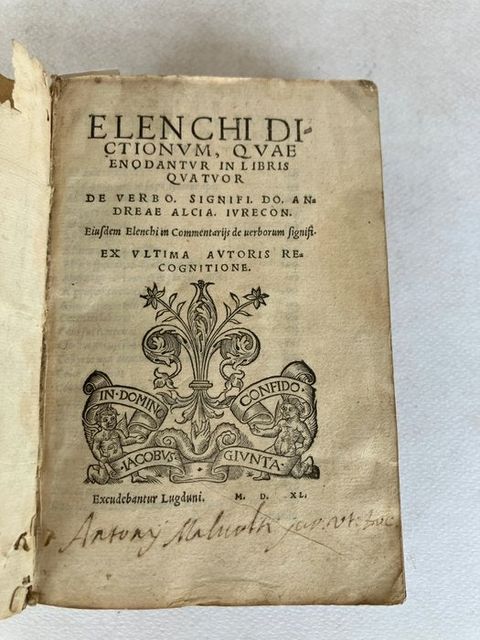 ELENCHI DI-
CTIONVM, QVAE
ENODANTVR IN LIBRIS
QVATVOR
DE VERBO. SIGNIFI. DO. AN-
DREAE ALCIA. IVRECON.
Eiusdem Elenchi in Commentarijs de uerborum signifi.
EX VLTIMA AVTORIS RE-
COGNITIONE.
IN·DOMINO
CONFIDO
·IACOBVS·
GIVNTA·
Excudebantur Lugduni. M. D. XL.
Antonij